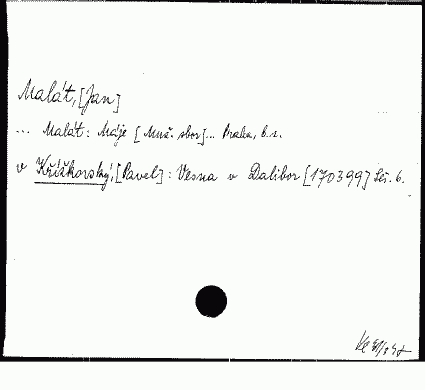 Malát, [Jan]
... Malát: Máje [Muž. sbor]... Praha, b.r.
v Křížkovský, [Pavel]: Vesna v Dalibor [170399] Seš. 6.